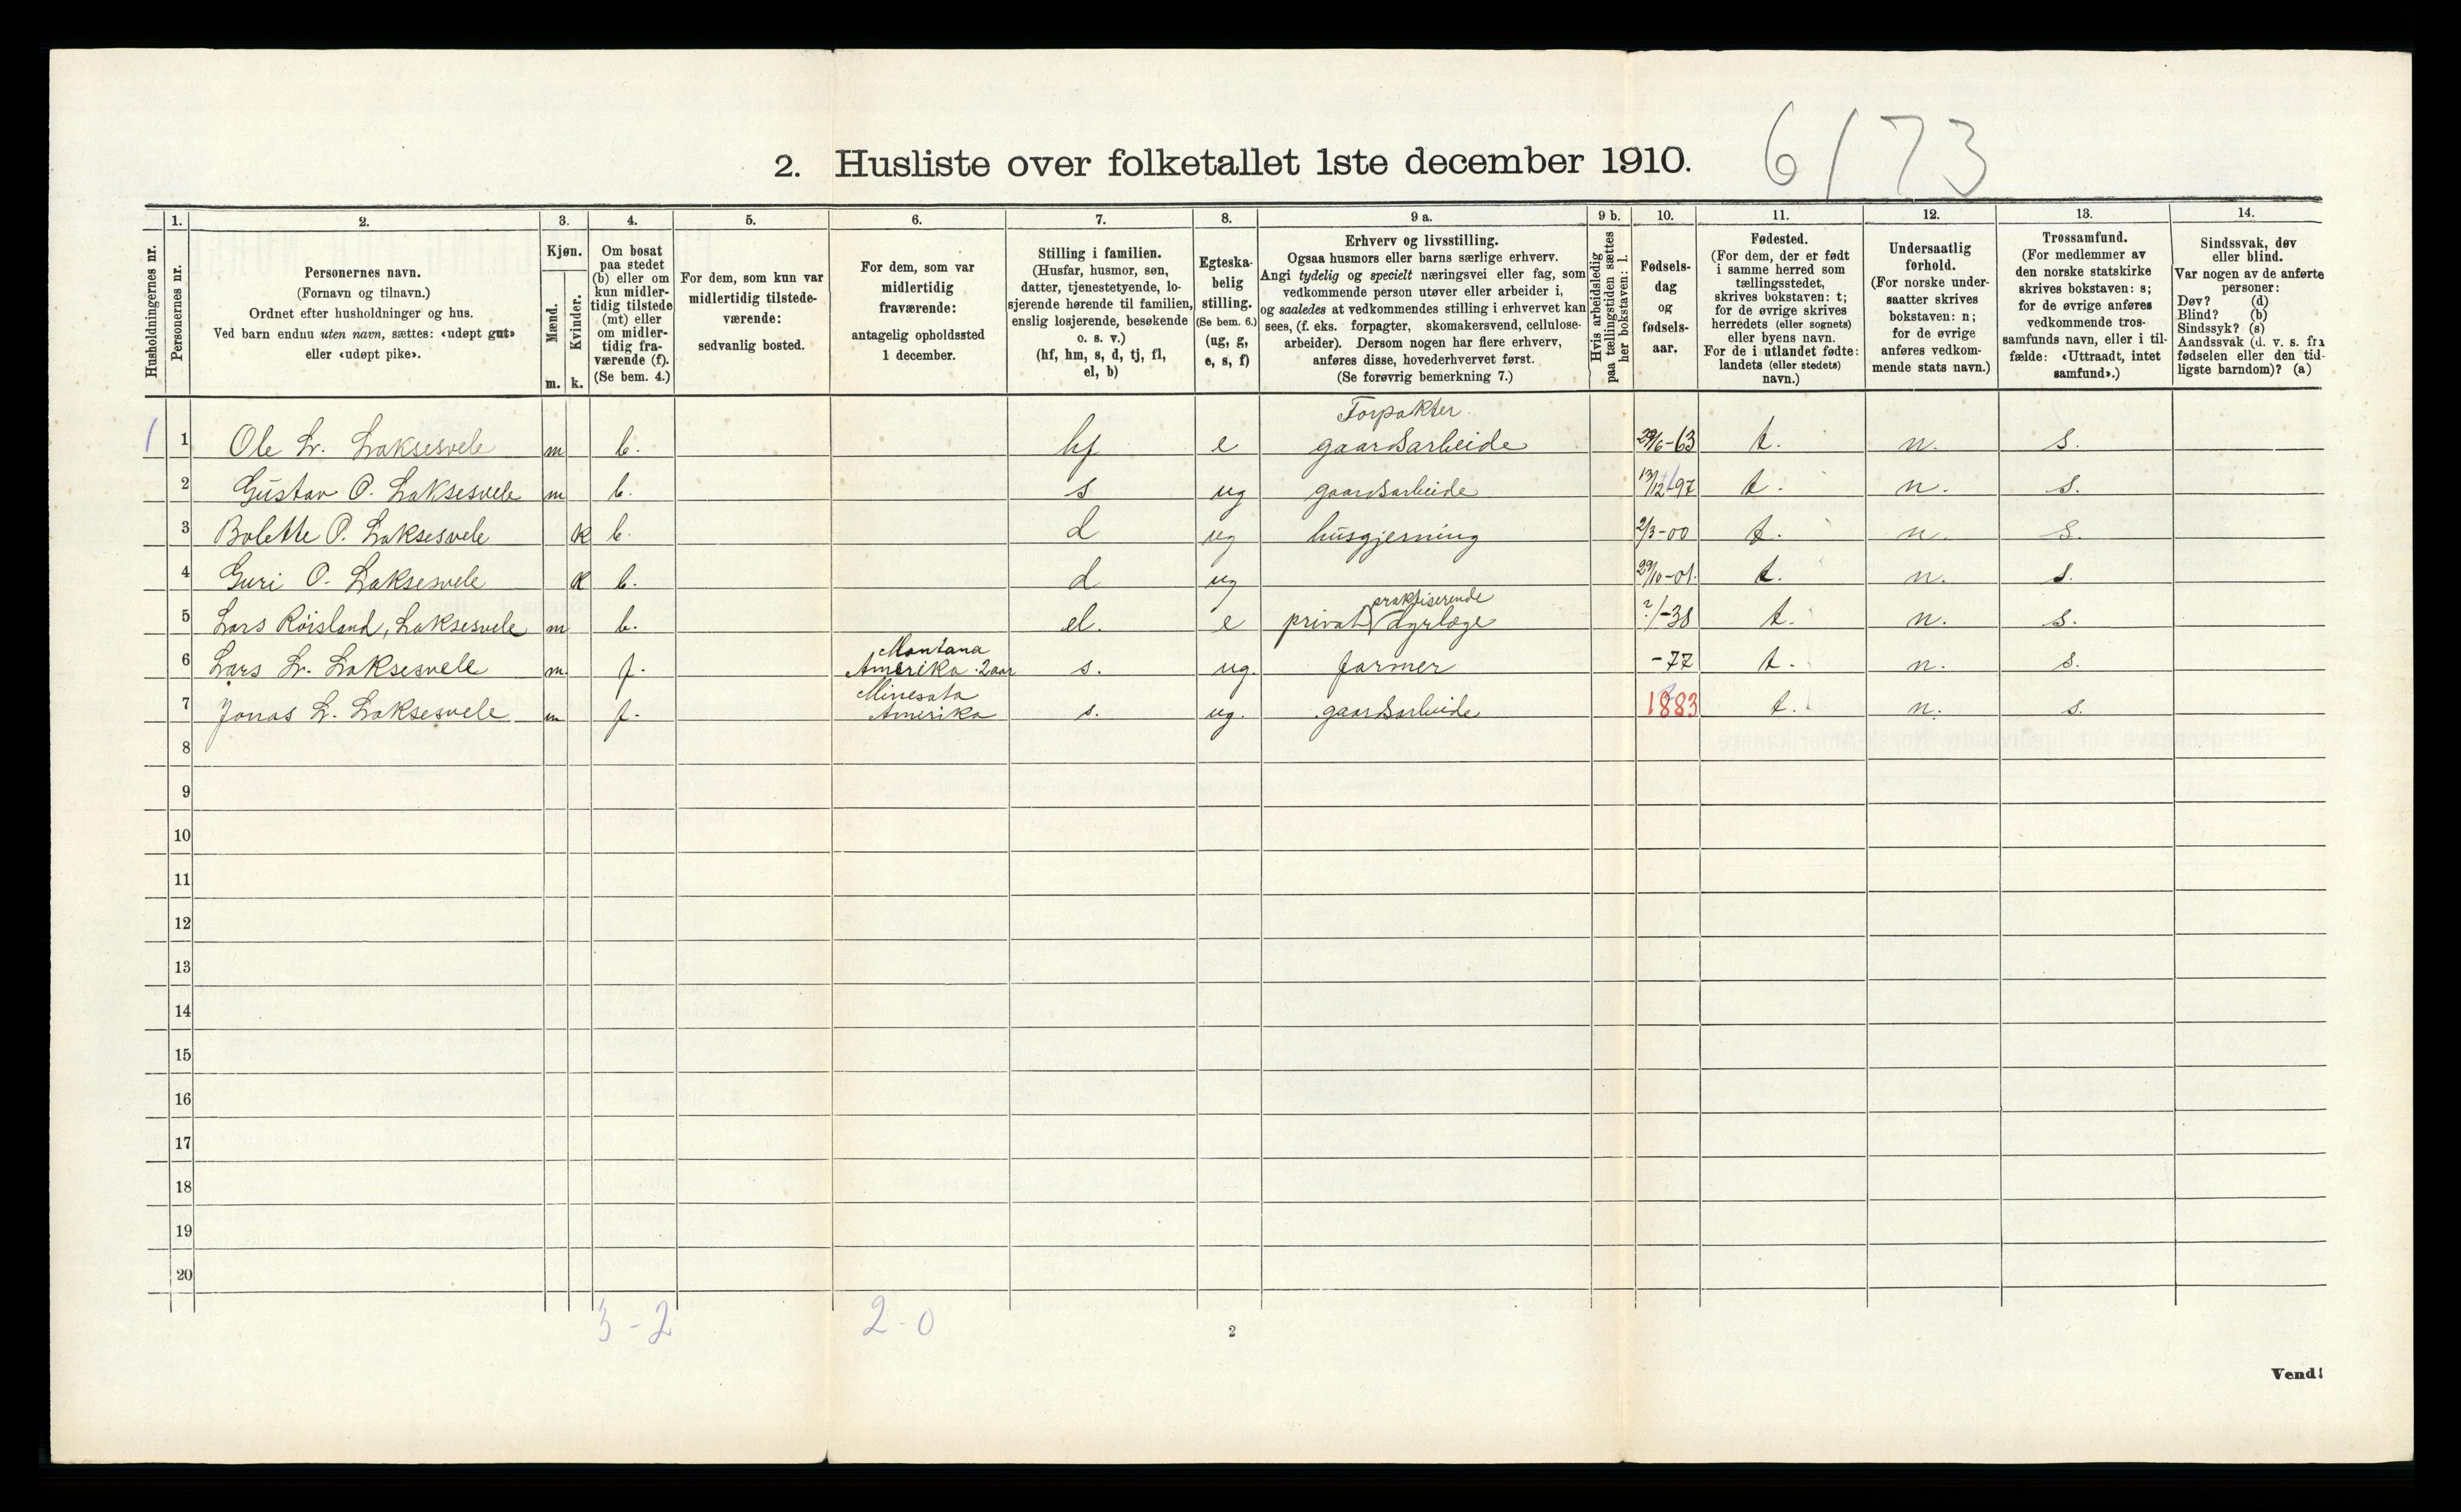 6/73
2. Husliste over folketallet 1ste december 1910.
Husholdningernes nr.
1.
Personernes nr.
2.
Personernes navn.
(Fornavn og tilnavn.)
Ordnet efter husholdninger og hus.
Ved barn endnu uten navn, sættes: «udøpt gut»
eller «udøpt pike».
3.
Kjøn.
Mænd.
Kvinder.
m. k.
4.
Om bosat
paa stedet
(b) eller om
kun midler-
tidig tilstede
(mt) eller
om midler-
tidig fra-
værende (f).
(Se bem. 4.)
5.
For dem, som kun var
midlertidig tilstede-
værende:
sedvanlig bosted.
6.
For dem, som var
midlertidig
fraværende:
antagelig opholdssted
1 december.
7.
Stilling i familien.
(Husfar, husmor, søn,
datter, tjenestetyende, lo-
sjerende hørende til familien,
enslig losjerende, besøkende
o. s. v.)
(hf, hm, s, d, tj, fl,
el, b)
8.
Egteska-
belig
stilling.
(Se bem. 6.)
(ug, g,
e, s, f)
9 a.
Erhverv og livsstilling.
Ogsaa husmors eller barns særlige erhverv.
Angi tydelig og specielt næringsvei eller fag, som
vedkommende person utøver eller arbeider i,
og saaledes at vedkommendes stilling i erhvervet kan
sees, (f. eks. forpagter, skomakersvend, cellulose-
arbeider). Dersom nogen har flere erhverv,
anføres disse, hovederhvervet først.
(Se forøvrig bemerkning 7.)
9 b.
Hvis arbeidsledig
paa tællingstiden sættes
her bokstaven: l.
10.
Fødsels-
dag
og
fødsels-
aar.
11.
Fødested.
(For dem, der er født
i samme herred som
tællingsstedet,
skrives bokstaven: t;
for de øvrige skrives
herredets (eller sognets)
eller byens navn.
For de i utlandet fødte:
landets (eller stedets)
navn.)
12.
Undersaatlig
forhold.
(For norske under-
saatter skrives
bokstaven: n;
for de øvrige
anføres vedkom-
mende stats navn.)
13.
Trossamfund.
(For medlemmer av
den norske statskirke
skrives bokstaven: s;
for de øvrige anføres
vedkommende tros-
samfunds navn, eller i til-
fælde: «Uttraadt, intet
samfund».)
14.
Sindssvak, døv
eller blind.
Var nogen av de anførte
personer:
Døv? (d)
Blind? (b)
Sindssyk? (s)
Aandssvak (d. v. s. fra
fødselen eller den tid-
ligste barndom)? (a)
Forpakter
1 1 Ole L. Laksesvele m b. hf e gaardsarbeide 29/6-63 t. n. s.
2 Gustav O. Laksesvele m b. s ug gaardsarbeide 13/12-97 t. n. s.
3 Bolette O. Laksesvele k b. d ug husgjerning 2/3-00 t. n. s.
4 Guri O. Laksesvele k b. d ug 29/10-01. t. n. s.
praktiserende
5 Lars Røisland, Laksesvele m b. el. e privat dyrlæge ?/-38 t. n. s.
Montana
6 Lars L. Laksesvele m. f. Amerika 2 aar s. ug. farmer -77 t. n. s.
Minesota
7 Jonas L. Laksesvele m f. Amerika s. ug. gaardsarbeide 1883 t. n. s.
8
9
10
11
12
13
14
15
16
17
18
19
20
3-2 2-0
2
Vend!